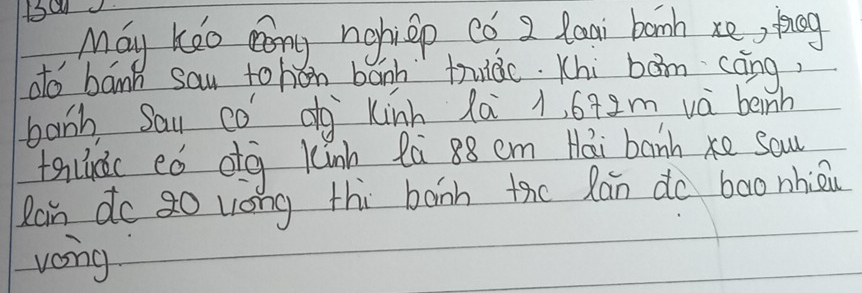 Máy kéo công nghiệp có 2 loại bánh xe, trog
đó bánh sau to hơn bánh trước. Khi bơm căng,
bánh sau có đg kính là 1,672m và bánh
trước có đg kính là 88 cm Hỏi bánh xe sau
lăn đc 20 vòng thì bánh trc lăn đc bao nhiêu
vòng